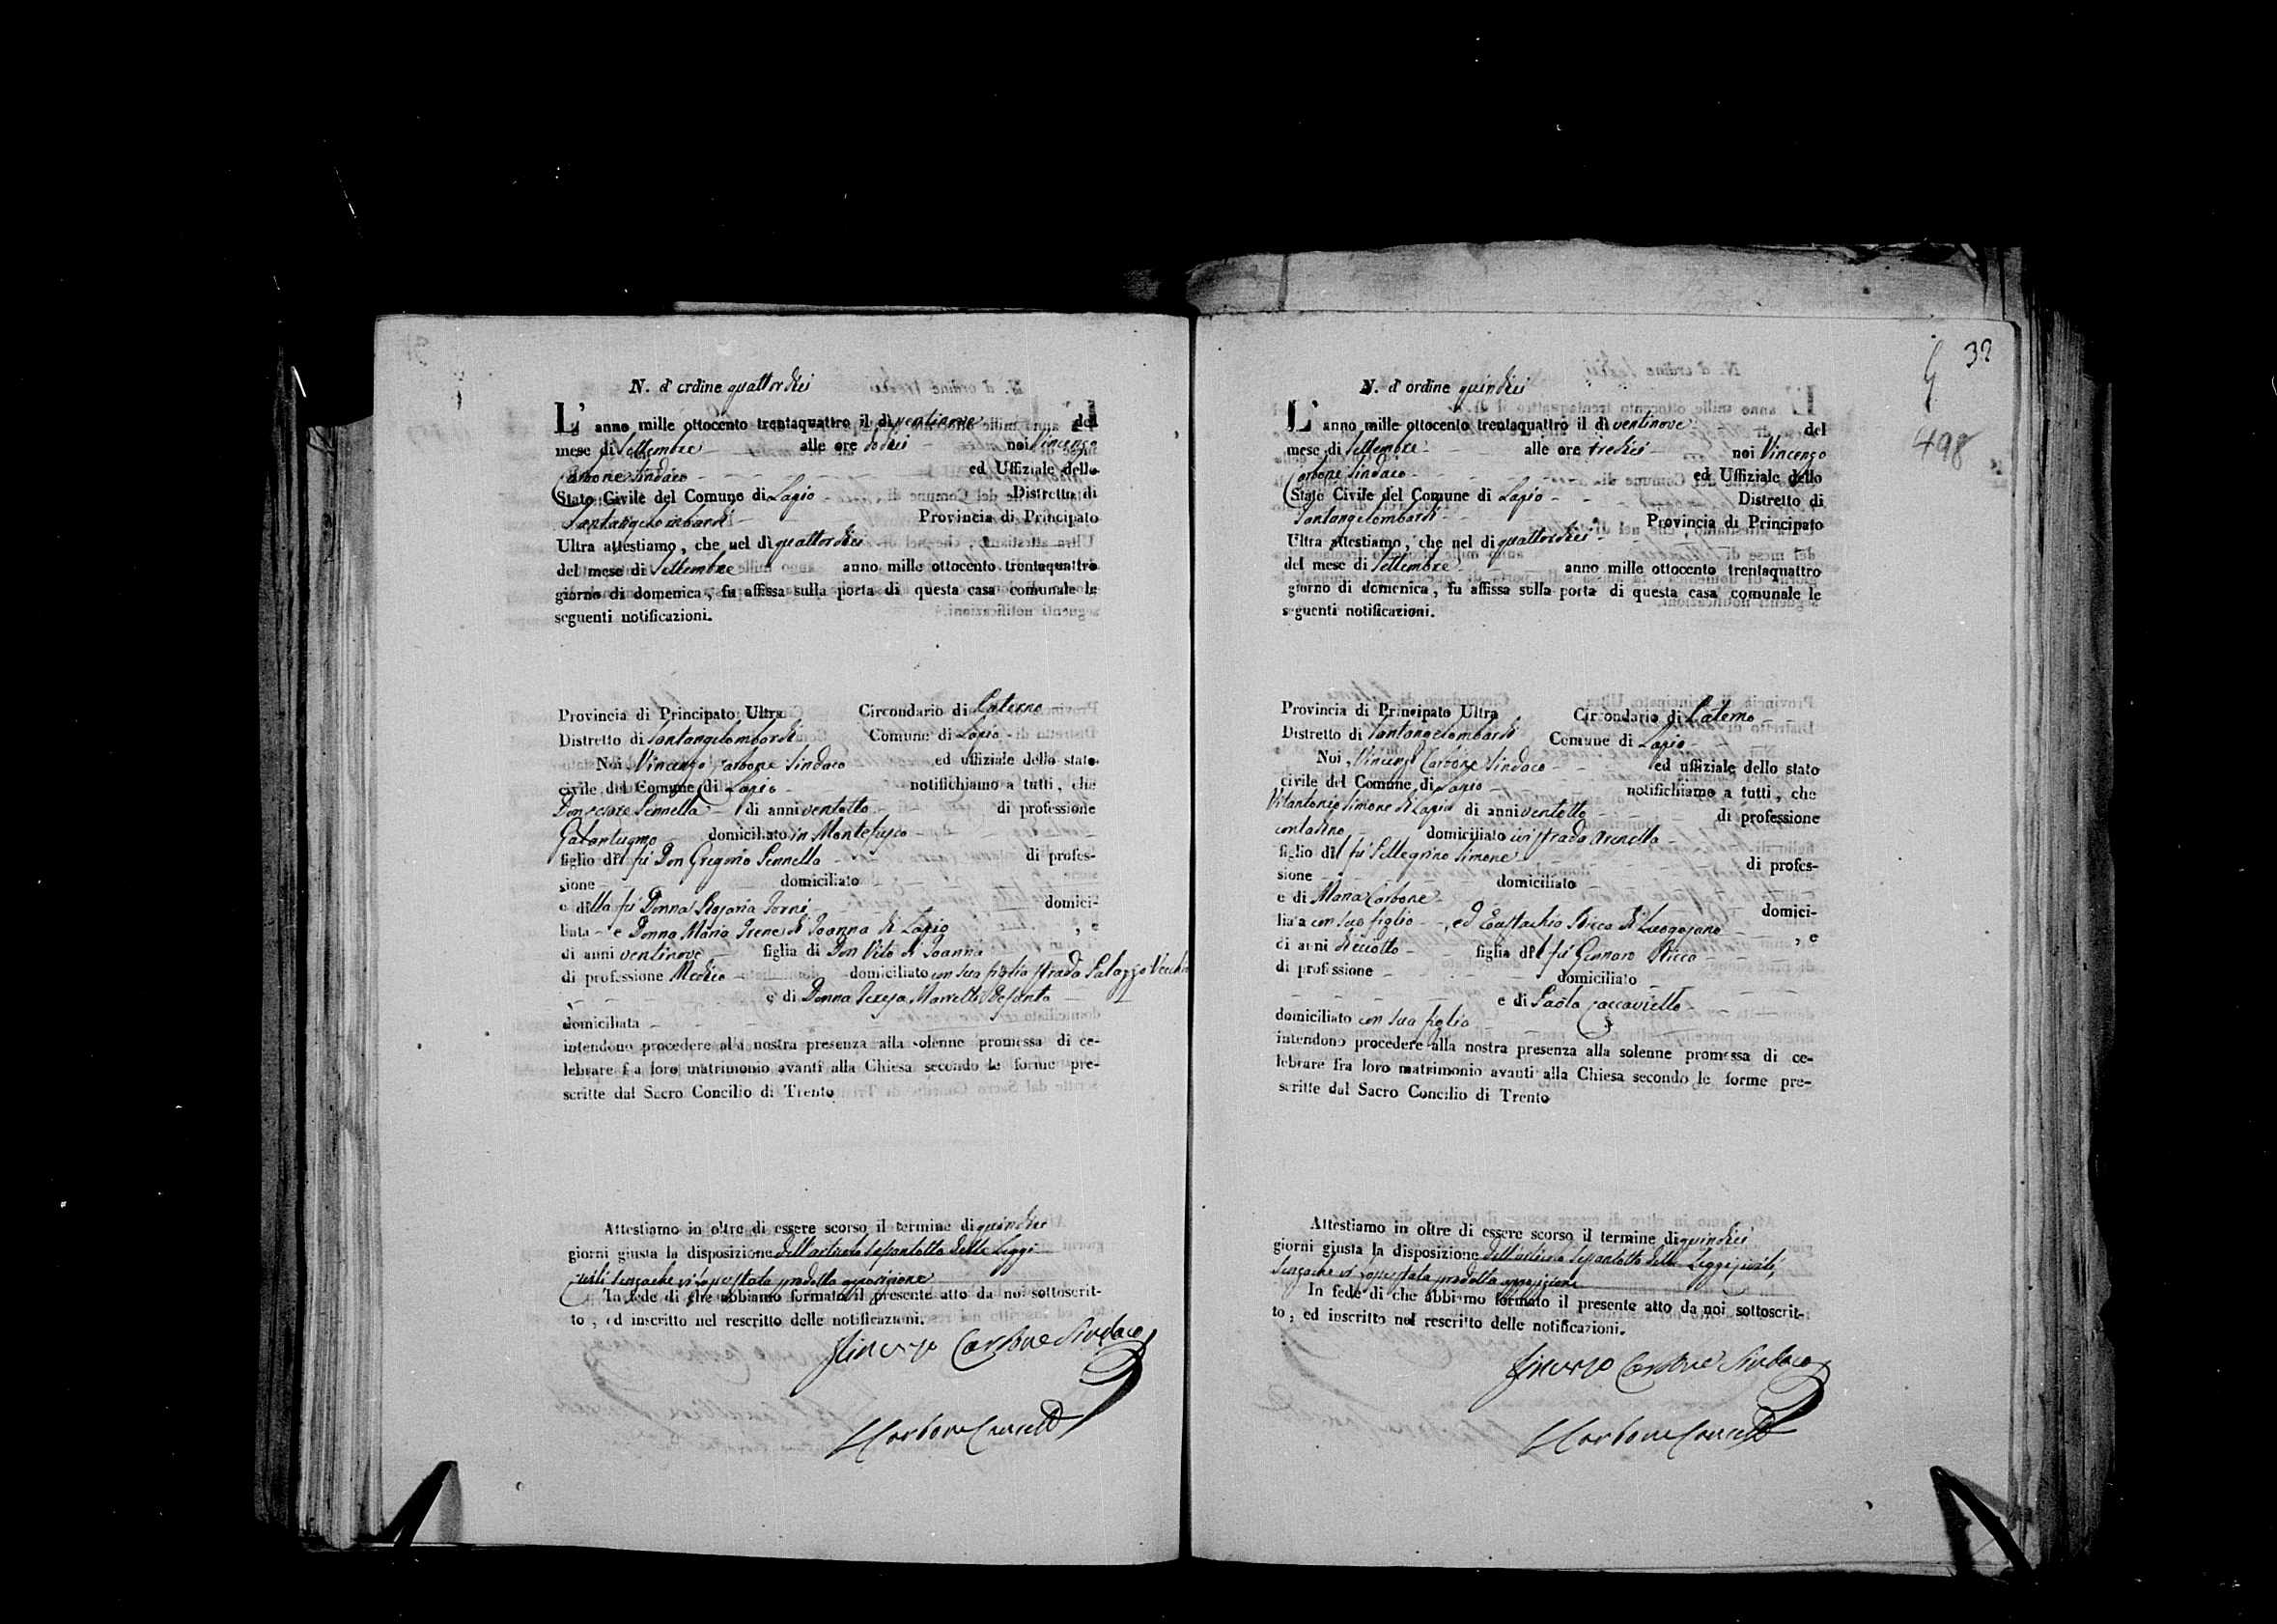 N. d'ordine quattordici
L'anno mille ottocento trentaquattro il dì ventinove del
mese di Settembre alle ore dodici noi Vincenzo
Carbone Sindaco ed Uffiziale dello
Stato Civile del Comune di Lapio Distretto di
Santangelombardi Provincia di Principato
Ultra attestiamo, che nel dì quattordici
del mese di Settembre anno mille ottocento trentaquattro
giorno di domenica, fu affissa sulla porta di questa casa comunale le
seguenti notificazioni.
Provincia di Principato Ultra Circondario di Paterno
Distretto di Santangelombardi Comune di Lapio
Noi Vincenzo Carbone Sindaco ed uffiziale dello stato
civile del Comune di Lapio notifichiamo a tutti, che
Don Cesare Pennella di anni ventotto di professione
Galantuomo domiciliato in Montefusco
figlio del fu Don Gregorio Pennella di profes-
sione domiciliato
e della fu Donna Rosaria domici-
liata e Donna Maria Irene di Joanna di Lapio , e
di anni ventinove figlia di Don Vito di Joanna
di professione Medico domiciliato con sua figlia strada Palazzo Vecchio
e di Donna Teresa Defonta
domiciliata
intendono procedere alla nostra presenza alla solenne promessa di ce-
lebrare fra loro matrimonio avanti alla Chiesa secondo le forme pre-
scritte dal Sacro Concilio di Trento
Attestiamo in oltre di essere scorso il termine di quindici
giorni giusta la disposizione dell'articolo sessantotto delle Leggi
Civili senzache vi fosse stata prodotta opposizione
In fede di che abbiamo formato il presente atto da noi sottoscrit-
to, ed inscritto nel rescritto delle notificazioni.
Vincenzo Carbone Sindaco
Carbone Cancell
32
498
N. d'ordine quindici
L'anno mille ottocento trentaquattro il dì ventinove del
mese di Settembre alle ore tredici noi Vincenzo
Carbone Sindaco ed Uffiziale dello
Stato Civile del Comune di Lapio Distretto di
Santangelombardi Provincia di Principato
Ultra attestiamo, che nel dì quattordici
del mese di Settembre anno mille ottocento trentaquattro
giorno di domenica, fu affissa sulla porta di questa casa comunale le
seguenti notificazioni.
Provincia di Principato Ultra Circondario di Paterno
Distretto di Santangelombardi Comune di Lapio
Noi Vincenzo Carbone Sindaco ed uffiziale dello stato
civile del Comune di Lapio notifichiamo a tutti, che
Vitantonio Simone di Lapio di anni ventotto di professione
contadino domiciliato in strada Arenella
figlio del fu Pellegrino Simone di profes-
sione domiciliato
e di Maria Carbone domici-
liata con suo figlio , ed Eustachia Ricco di Luogosano , e
di anni dieciotto figlia del fu Gennaro Ricco
di professione domiciliato
e di Paola Caccaviello
domiciliato con sua figlia
intendono procedere alla nostra presenza alla solenne promessa di ce-
lebrare fra loro matrimonio avanti alla Chiesa secondo le forme pre-
scritte dal Sacro Concilio di Trento
Attestiamo in oltre di essere scorso il termine di quindici
giorni giusta la disposizione dell'articolo sessantotto delle Leggi civili,
senzache vi fosse stata prodotta opposizione
In fede di che abbiamo formato il presente atto da noi sottoscrit-
to, ed inscritto nel rescritto delle notificazioni.
Vincenzo Carbone Sindaco
Carbone Cancell